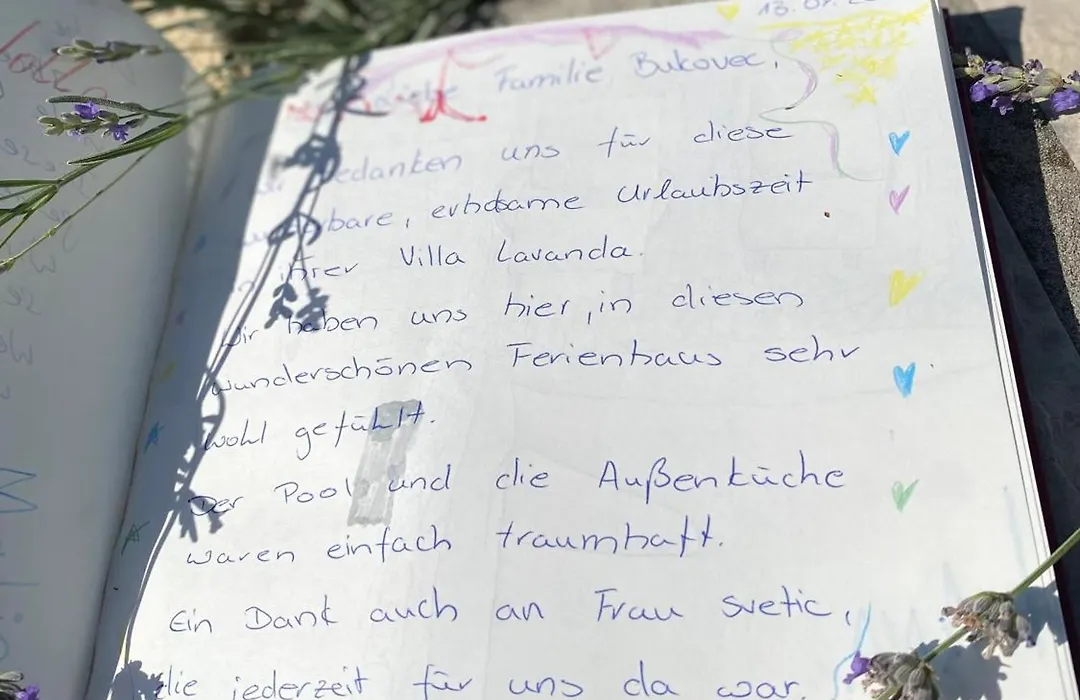 13.07.
Liebe Familie Bukovec,
wir bedanken uns für diese
wunderbare, erholsame Urlaubszeit
in ihrer Villa Lavanda.
Wir haben uns hier, in diesen
wunderschönen Ferienhaus sehr
wohl gefühlt.
Der Pool und die Außenküche
waren einfach traumhaft.
Ein Dank auch an Frau Svetic,
die jederzeit für uns da war.